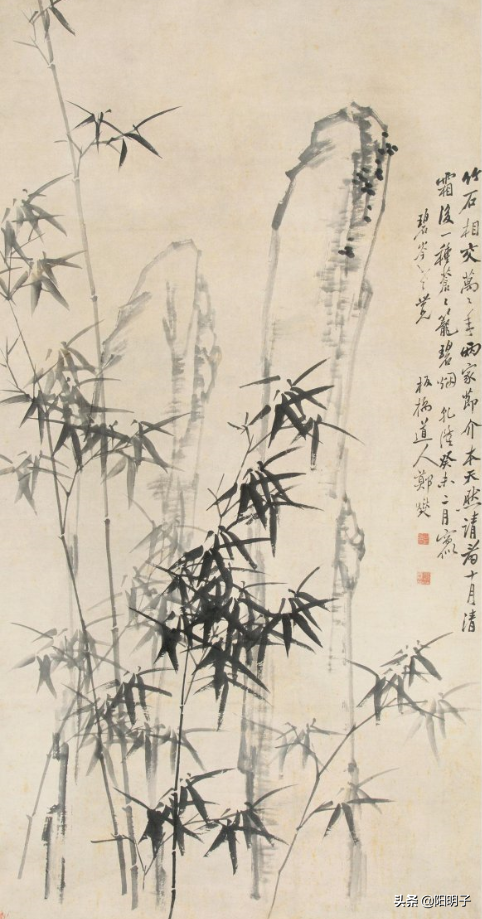 竹石相交萬〻年兩家節介本天然請看十月清
霜後一種蒼〻籠碧烟 乾隆癸未二月寫似
碧岑
板橋道人鄭燮
头条 @阳明子